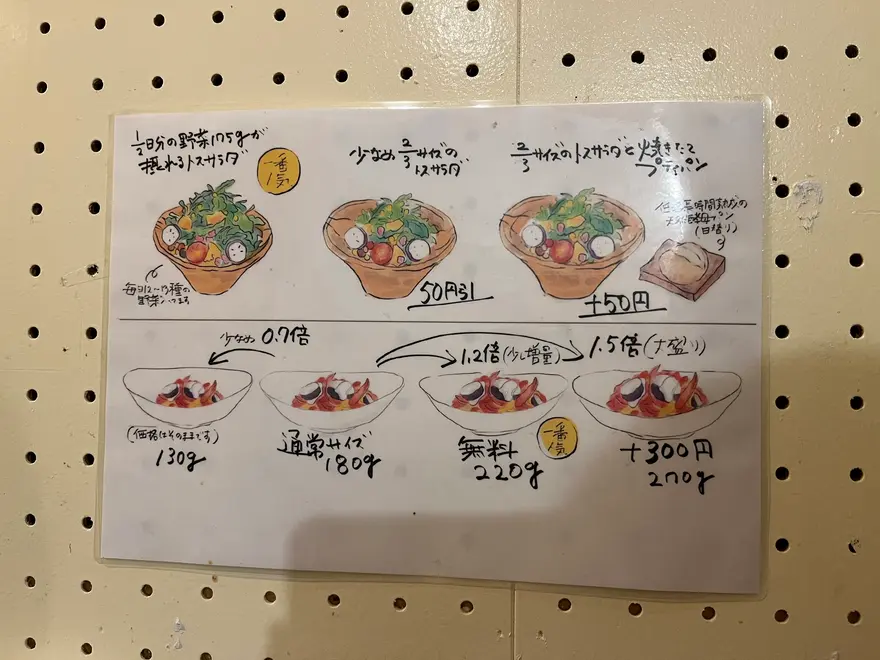 1/2日分の野菜175gが
摂れるトスサラダ
一番
人気
毎日12〜13種の
野菜入ってます
少なめ 2/3サイズの
トスサラダ
50円引
2/3サイズのトスサラダと焼きたて
プティパン
低温長時間熟成の
天然酵母パン
(日替り)
+50円
少なめ 0.7倍
1.2倍(少し増量)
1.5倍(大盛り)
(価格はそのままです)
130g
通常サイズ
180g
無料
220g
一番
人気
+300円
270g